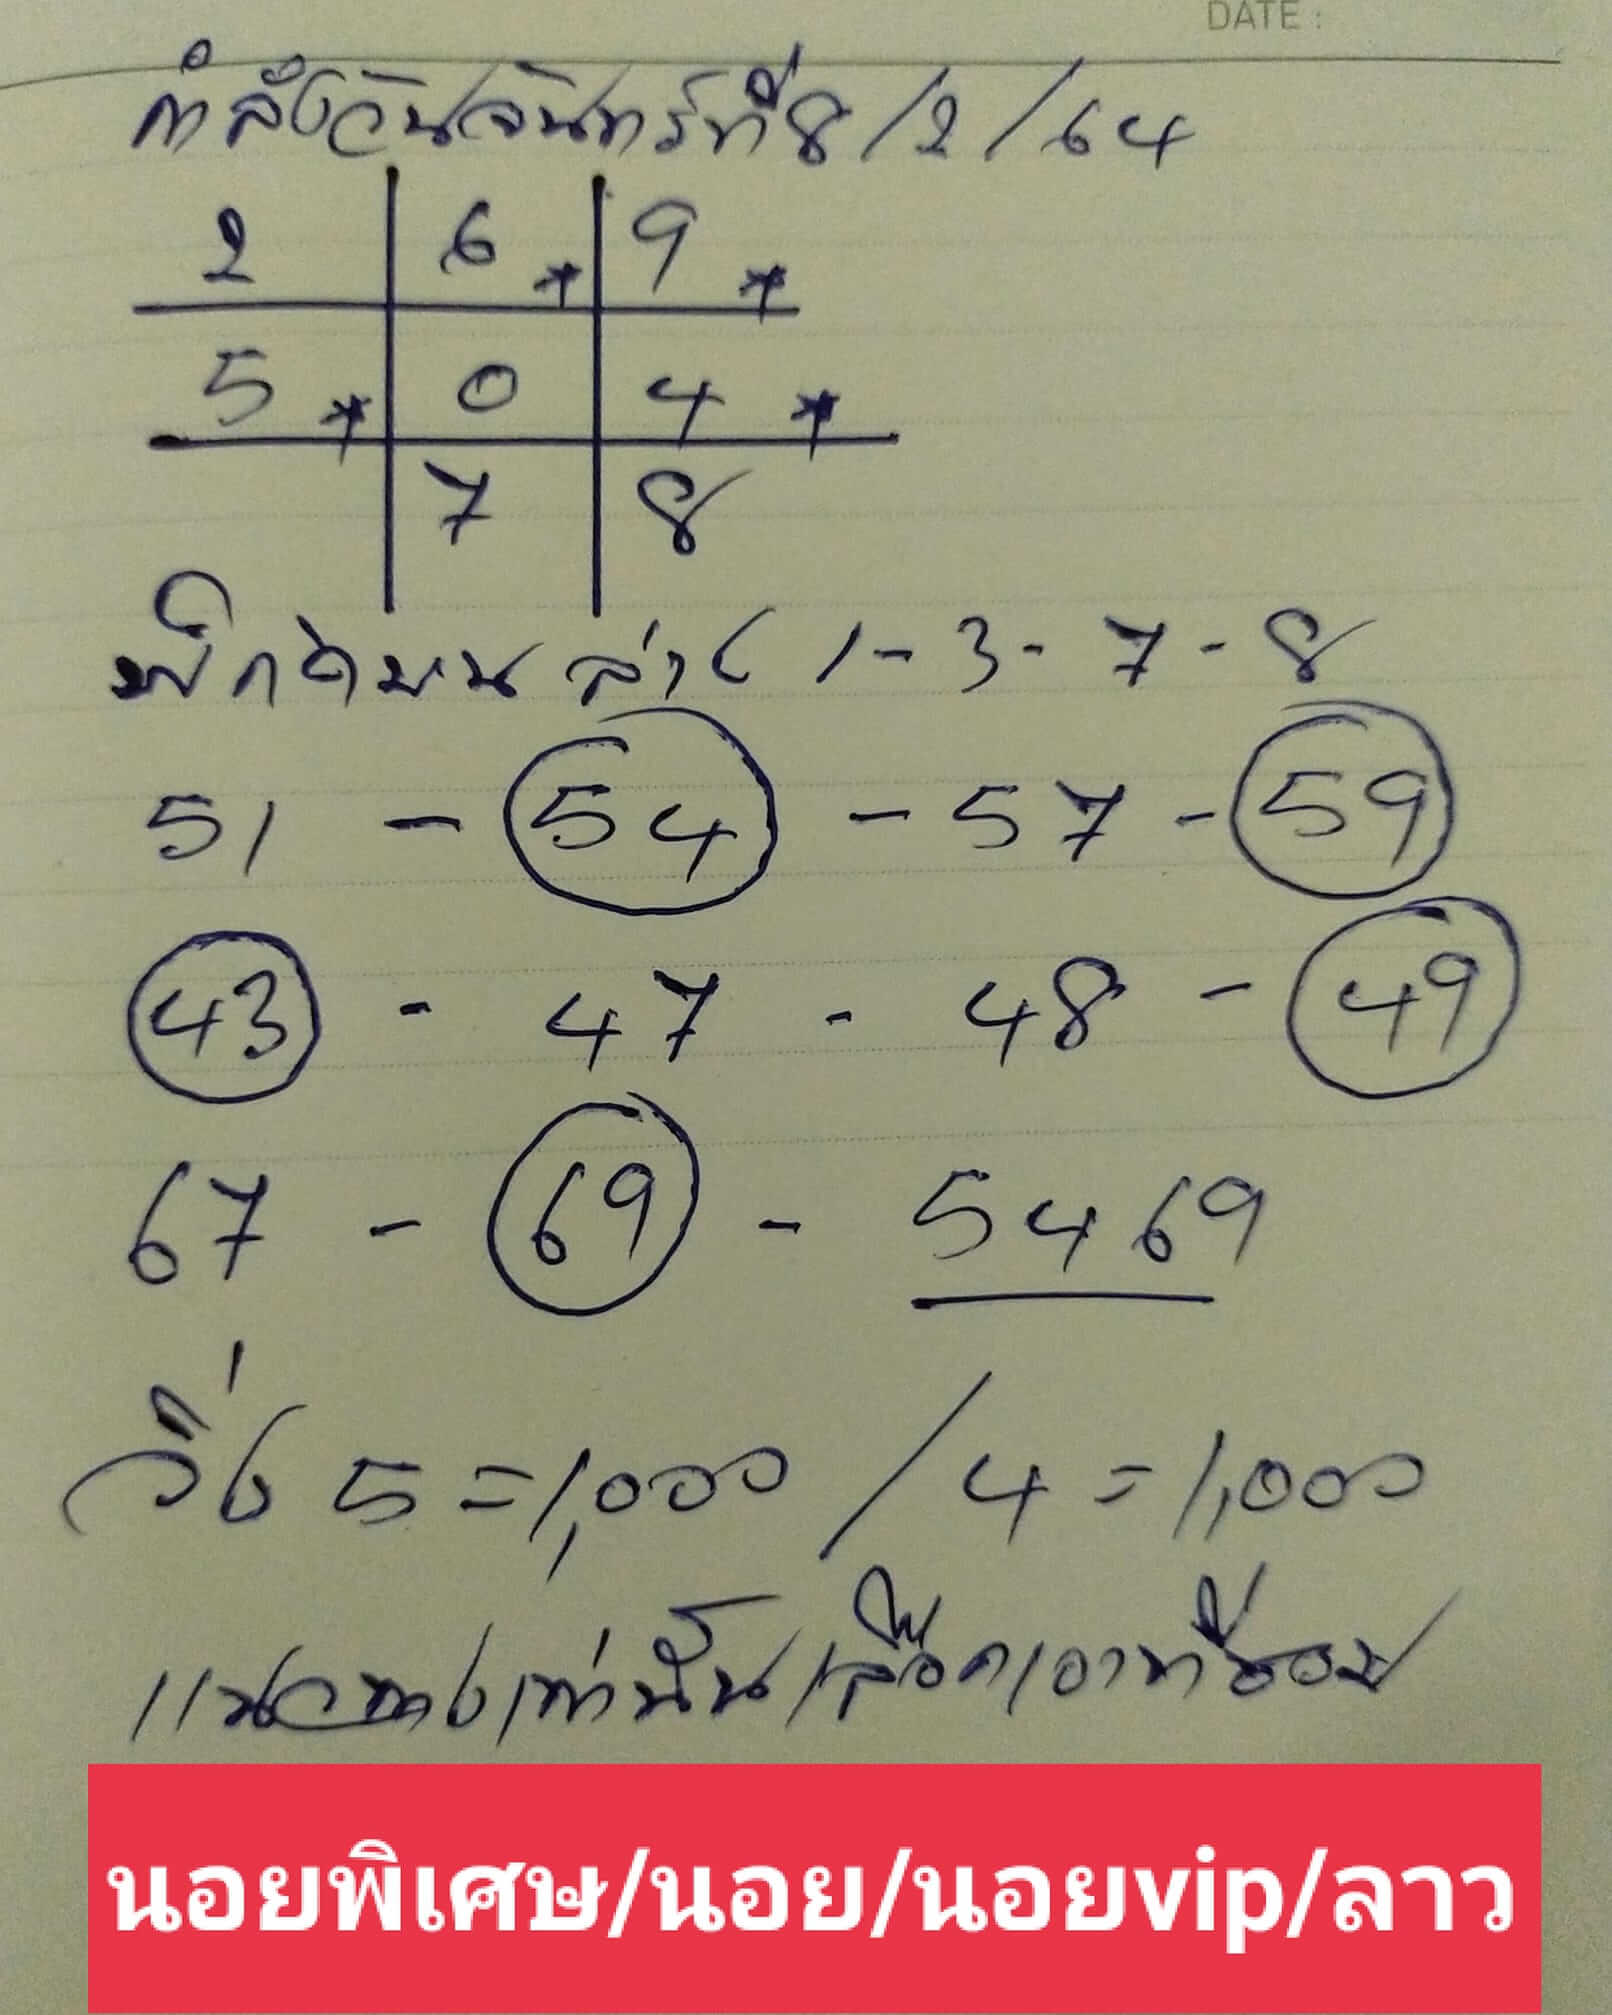 DATE :
กำลังวันจันทร์ที่ 8/2/64
2 6 * 9 *
5 * 0 4 *
7 8
พิกัดบน ล่าง 1-3-7-8
51 - 54 - 57 - 59
43 - 47 - 48 - 49
67 - 69 - 5469
วิ่ง 5 = 1,000 / 4 = 1,000
แนวทางเท่านั้นเลือกเอาที่ชอบ
นอยพิเศษ/นอย/นอยvip/ลาว